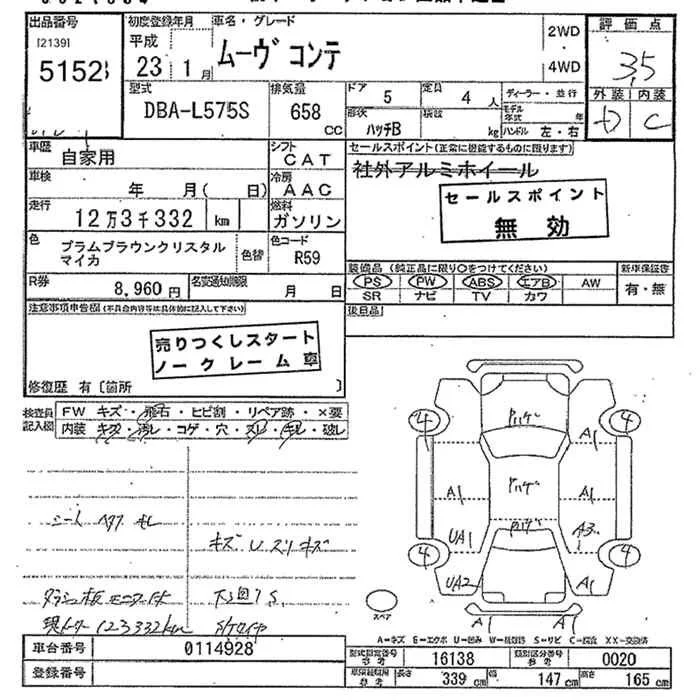 出品番号
[2139]
5152
初度登録年月
平成
23年1月
車名・グレード
ムーヴ コンテ
2WD
4WD
評価点
3.5
外装 内装
D C
型式
DBA-L575S
排気量
658
CC
ドア
5
定員
4人
形状
ハッチB
積載
kg
ディーラー・並行
モデル年式
年
ハンドル 左・右
車歴
自家用
シフト
CAT
車検
年 月( 日)
冷房
AAC
走行
12万3千332 km
燃料
ガソリン
色
プラムブラウンクリスタル
マイカ
色替
色コード
R59
R券
8,960円
名変通知期限
月 日
セールスポイント(正常に機能するものに限ります)
社外アルミホイール
セールスポイント
無効
装備品(純正品に限り○をつけてください)
PS PW ABS エアB AW
SR ナビ TV カワ
新車保証書
有・無
後日品
注意事項申告欄(不具合内容等は具体的に記入して下さい)
売りつくしスタート
ノークレーム車
修復歴 有〔箇所 〕
検査員
記入欄
FW キズ・飛石・ヒビ割・リペア跡・×要
内装・キズ・汚レ・コゲ・穴・スレ・キレ・破レ
シート ヘタリ キレ
キズ U スリキズ
下廻りS
現メーター 123332km
4 4
A1
A1 A1
UA1 A3
4 4
UA2 A1
A1 A1
スペア
A-キズ E-エクボ U-凹み W-補修跡 S-サビ C-腐食 XX-交換済
車台番号
0114928
登録番号
型式指定番号
参考
16138
類別区分番号
参考
0020
車検証記載
参考
長さ
339 cm
幅
147 cm
高さ
165 cm